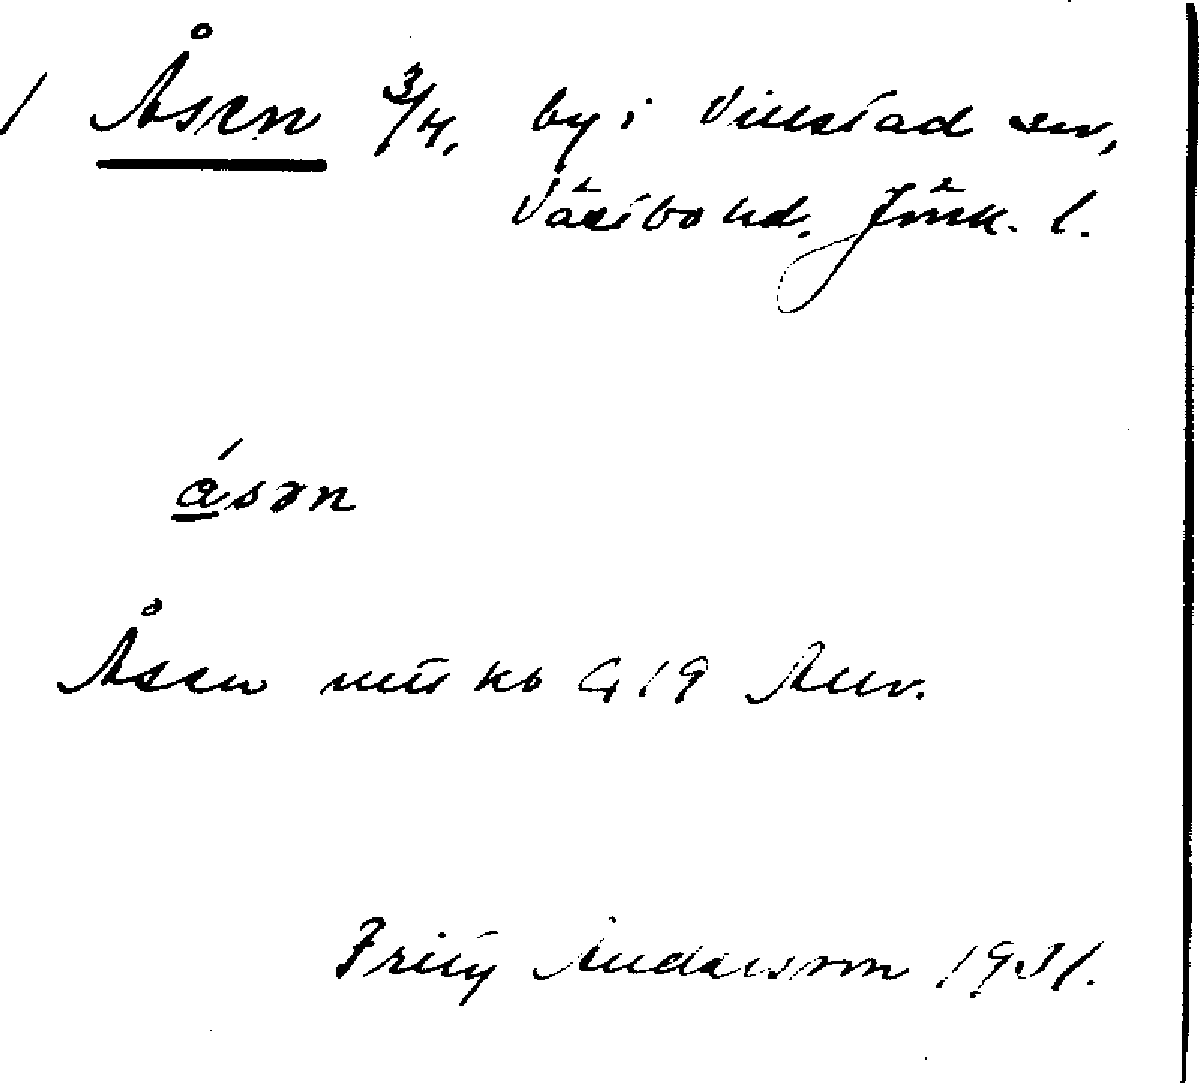 / Åsen 3/4, by i Villstad sn,
Västbo hd. Jönk. l.
ásən
Åsen utt kb G 19 Anv.
Fritz Andersson 1931.